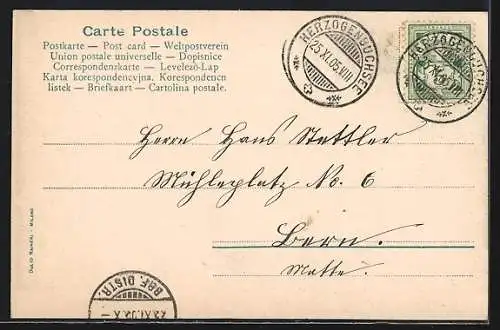 Carte Postale
Postkarte — Post card — Weltpostverein
Union postale universelle — Dopisnice
Correspondenzkarte — Levelezö-Lap
Karta korespondencyjna. Korespondencn
listek — Briefkaart — Cartolina postale.
HERZOGENBUCHSEE
25.XI.05.VIII
HERZOGENBUCHSEE
Herrn Hans Stettler
Mühleplatz No. 6
Bern.
Matte.
BRF. DISTR.